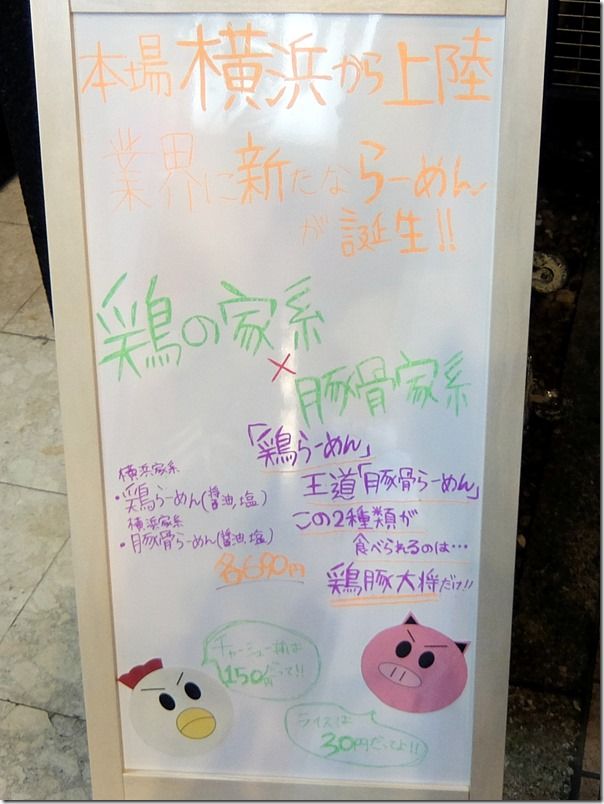 本場横浜から上陸
業界に新たならーめん
が誕生!!
鶏の家系
×
豚骨家系
「鶏らーめん」
王道「豚骨らーめん」
この2種類が
食べられるのは…
鶏豚大将だけ!!
横浜家系
・鶏らーめん(醤油,塩)
横浜家系
・豚骨らーめん(醤油,塩)
各690円
チャーシュー丼は
150円だって!!
ライスは
30円だってよ!!